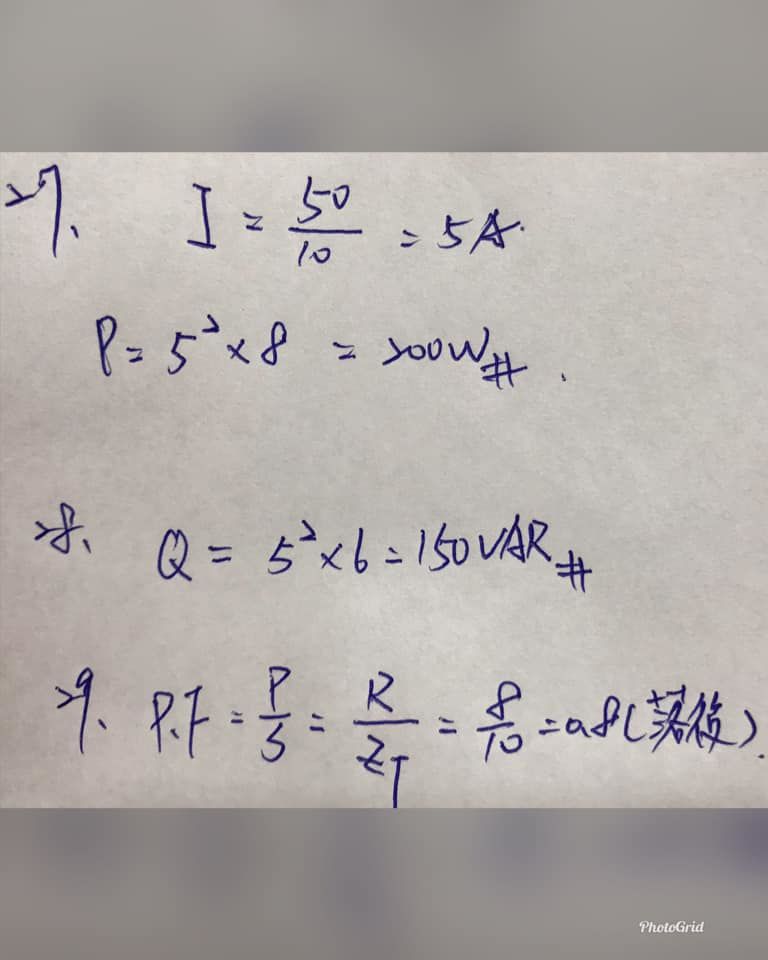 27. I = 50/10 = 5A.
P = 5² × 8 = 200W# .
28、 Q = 5² × 6 = 150VAR#
29、 P.F = P/S = R/Z_T = 8/10 = 0.8 (落後).
PhotoGrid